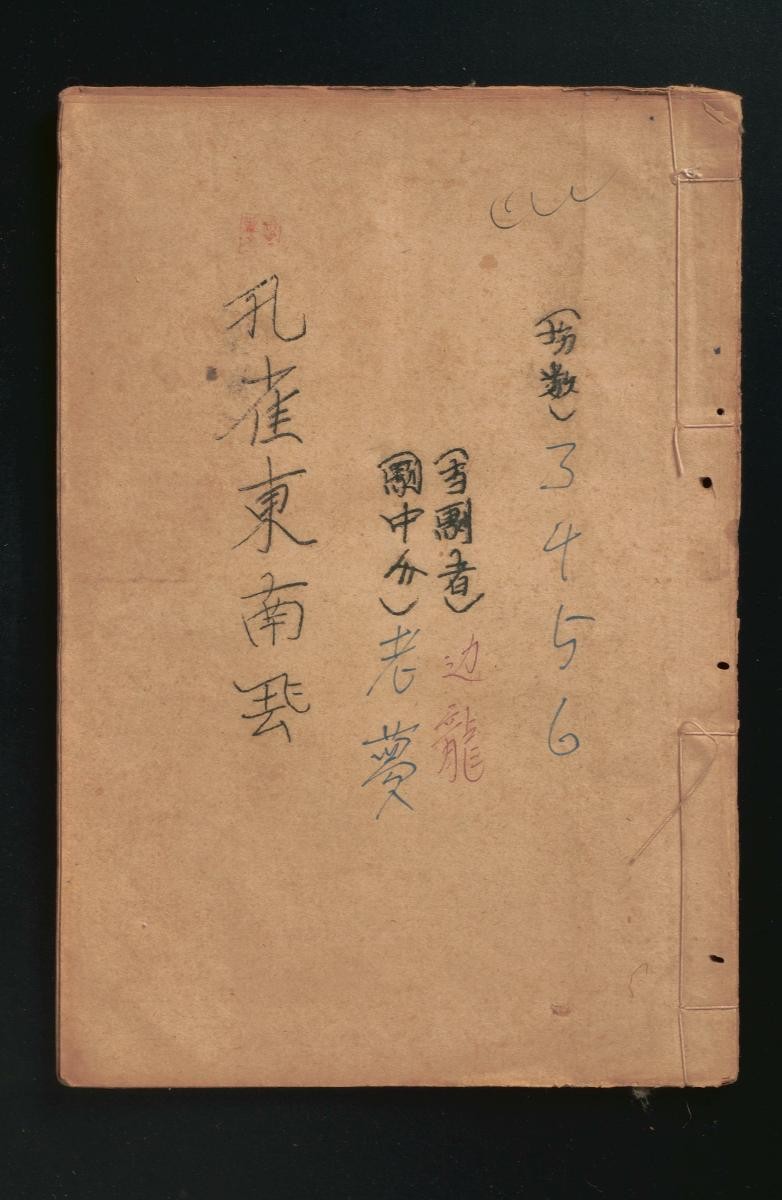 (场数) 3 4 5 6
(写劇者) 边龍
(劇中人) 老夢
孔雀東南飛